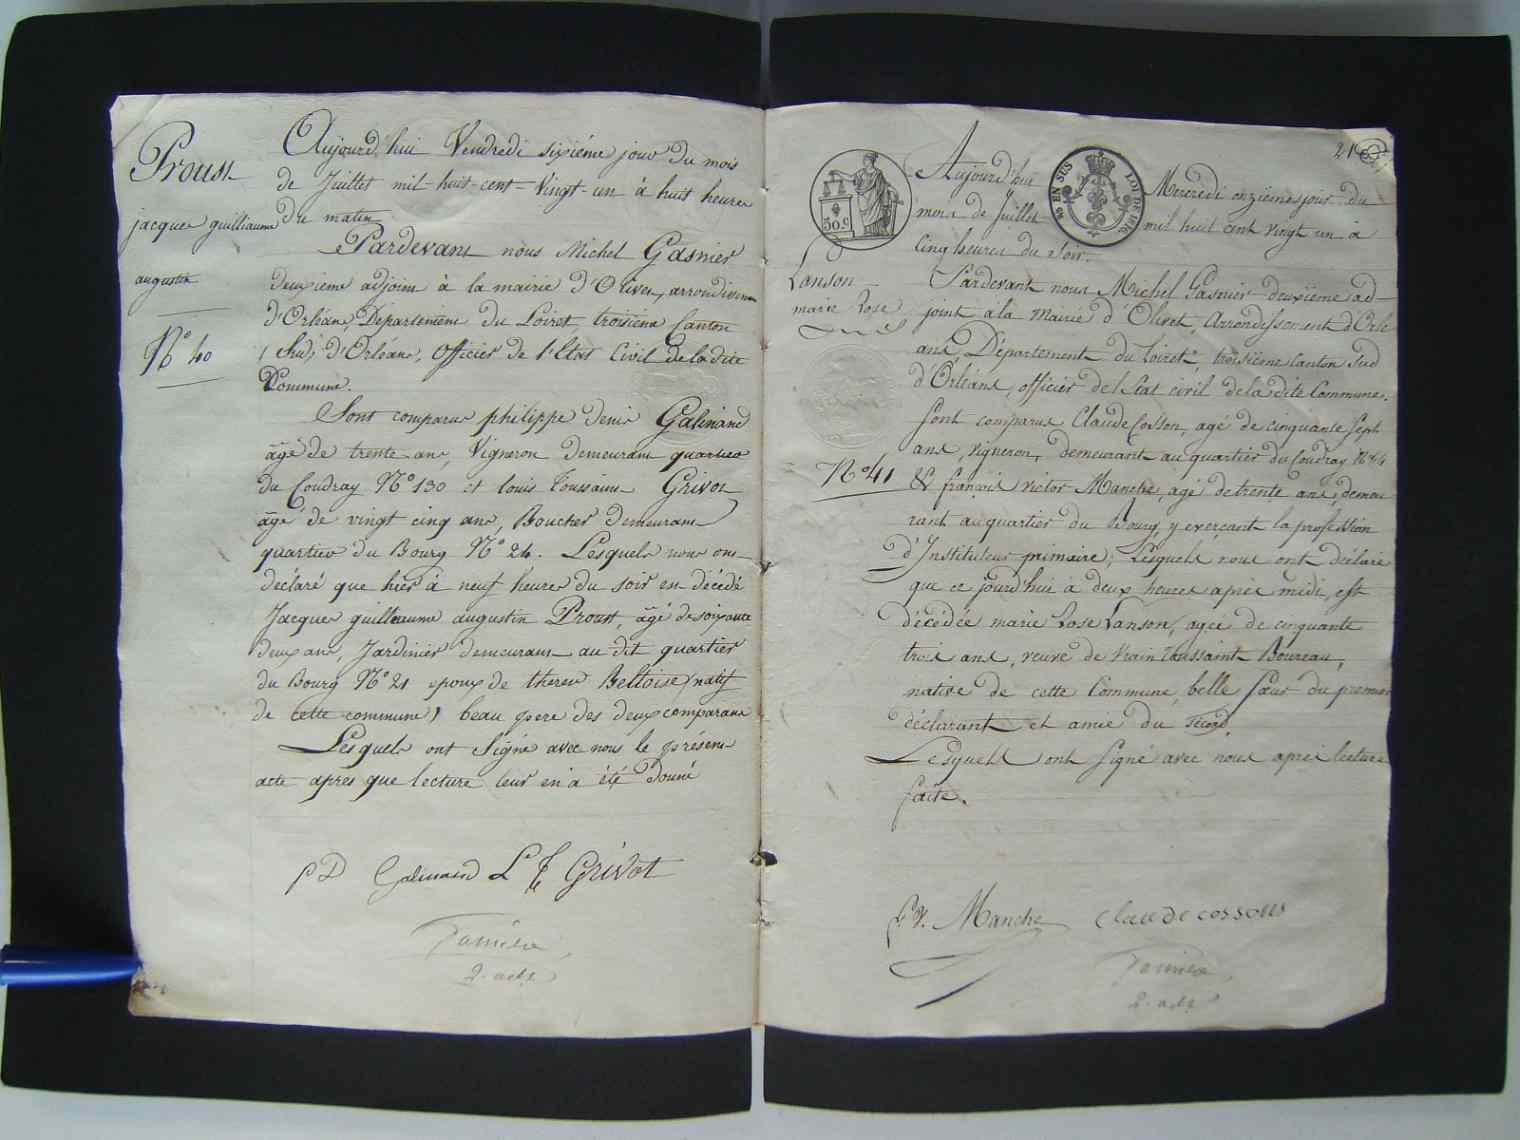 Proust
jacques guilliaume
augustin
N° 40
Aujourd'hui Vendredi sixiéme jour du mois
de Juillet mil-huit-cent-Vingt-un à huit heures
du matin
Pardevant nous Michel Gasnier
deuxieme adjoint à la mairie d'Olivet, arrondissem
d'Orléans, Département du Loiret, troisiéme Canton
(Sud) d'Orléans, Officier de l'Etat Civil de la dite
Commune.
Sont comparus philippe denis Galinand
âgé de trente ans, Vigneron demeurant quartier
du Coudray N° 130 et louis Toussaint Grivot
âgé de vingt cinq ans, Boucher demeurant
quartier du Bourg N° 24. Lesquels nous ont
declaré que hier à neuf heures du soir est décédé
Jacques guilleaume augustin Proust, âgé de soixante
deux ans, Jardinier demeurant au dit quartier
du Bourg N° 21 epoux de therese Beltoise (natif
de cette commune) beau pere des deux comparans
Lesquels ont Signé avec nous le présent
acte apres que lecture leur en a été donné
P D Galinand L T Grivot
2. adj.
21
30 c
EN SUS
LOI DE 1816
Lanson
marie Rose
N° 41
Aujourd'hui Mercredi onzième jour du
mois de Juillet mil huit cent vingt un à
Cinq heures du soir.
Pardevant nous Michel Gasnier deuxième ad-
joint à la Mairie d'Olivet, Arrondissement d'Orlé
ans, Département du Loiret, troisième Canton Sud
d'Orléans, officier de l'Etat civil de la dite Commune.
Sont comparus Claude Cosson, agé de cinquante Sept
ans, vigneron, demeurant au quartier du Coudray
& françois victor Manche, agé de trente ans, demeu
rant au quartier du Bourg, y exerçant la profession
d'Instituteur primaire; Lesquels nous ont déclaré
que ce jourd'hui à deux heures après midi, est
décédée marie Rose Lanson, agée de cinquante
trois ans, veuve de Vrain Toussaint Boureau,
native de cette Commune, belle Sœur du premier
déclarant et amie du second.
Lesquels ont Signé avec nous après lecture
faite.
F. V. Manche Claude cosson
2. adj.